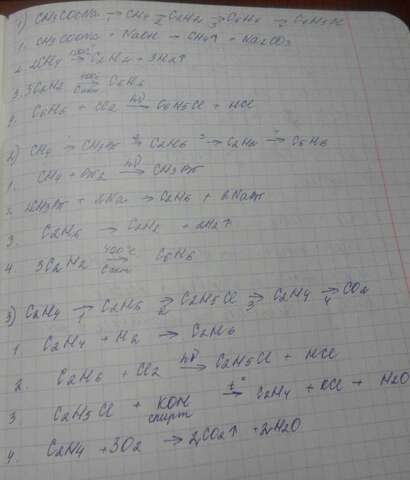 1) CH3COONa → CH4 → C2H2 → C6H6 → C6H5Cl
1. CH3COONa + NaOH → CH4↑ + Na2CO3
2. 2CH4 → C2H2 + 3H2↑
3. 3C2H2 → C6H6
4. C6H6 + Cl2 hν→ C6H5Cl + HCl
2) CH4 → CH3Br → C2H6 → C2H2 → C6H6
1. CH4 + Br2 hν→ CH3Br
2. 2CH3Br + 2Na → C2H6 + 2NaBr
3. C2H6 → C2H2 + 2H2↑
4. 3C2H2 400°C→ C6H6
3) C2H4 →1 C2H6 →2 C2H5Cl →3 C2H4 →4 CO2
1 C2H4 + H2 → C2H6
2 C2H6 + Cl2 hν→ C2H5Cl + HCl
3 C2H5Cl + KOH спирт t°→ C2H4 + KCl + H2O
4. C2H4 + 3O2 → 2CO2↑ + 2H2O